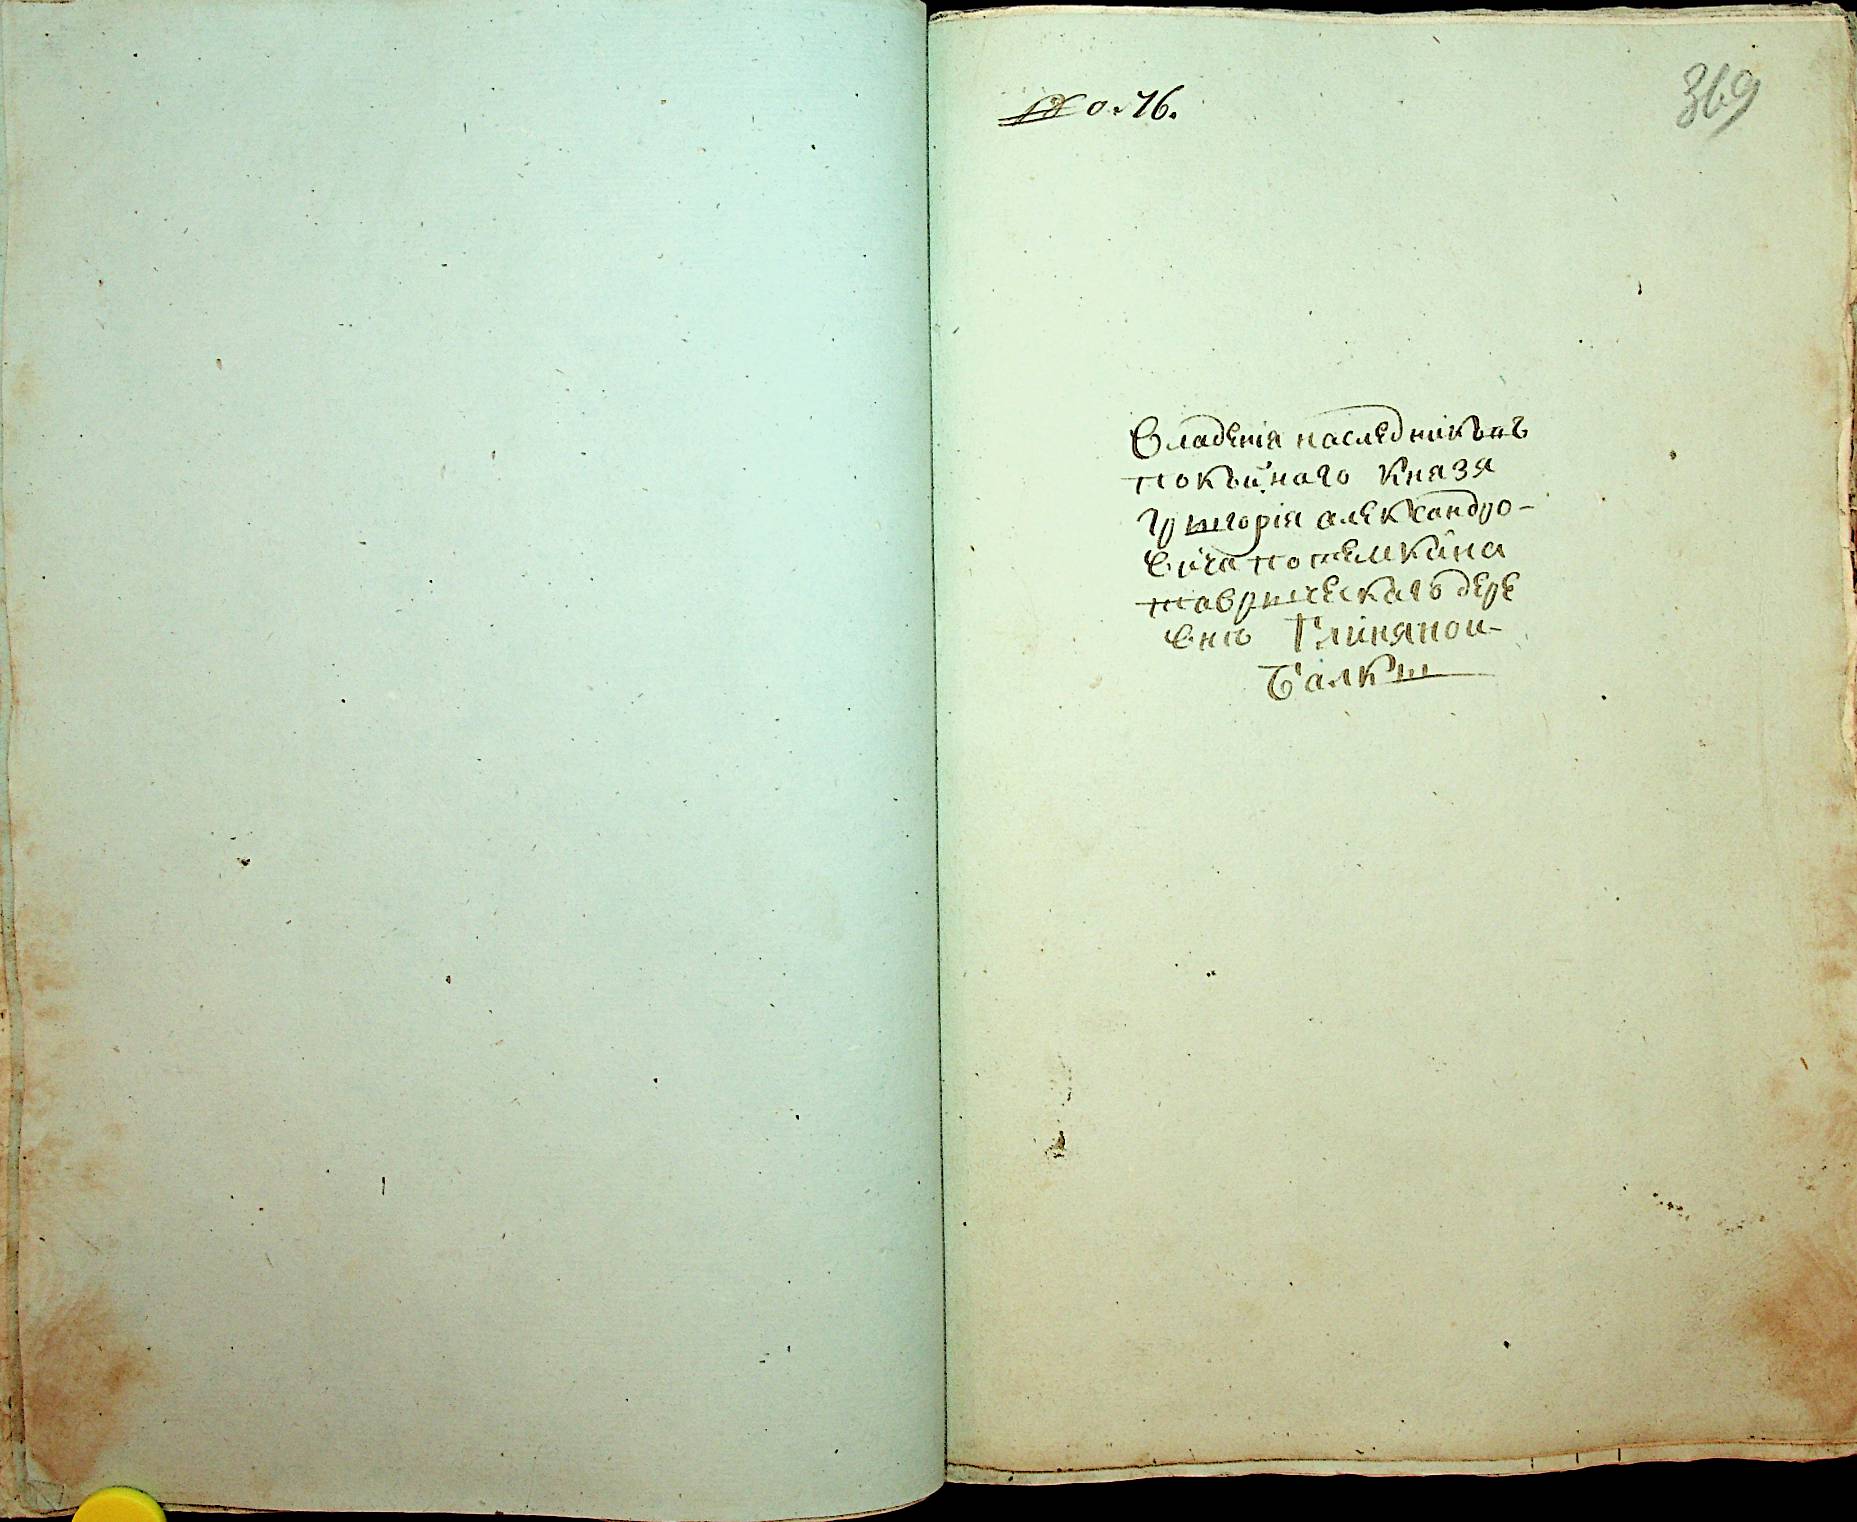 No. 76.
369
Владения наследниковъ
покойнаго Князя
григорія александро-
вича потемкина
таврическагѡ дере
внѣ Глиняной
Балки